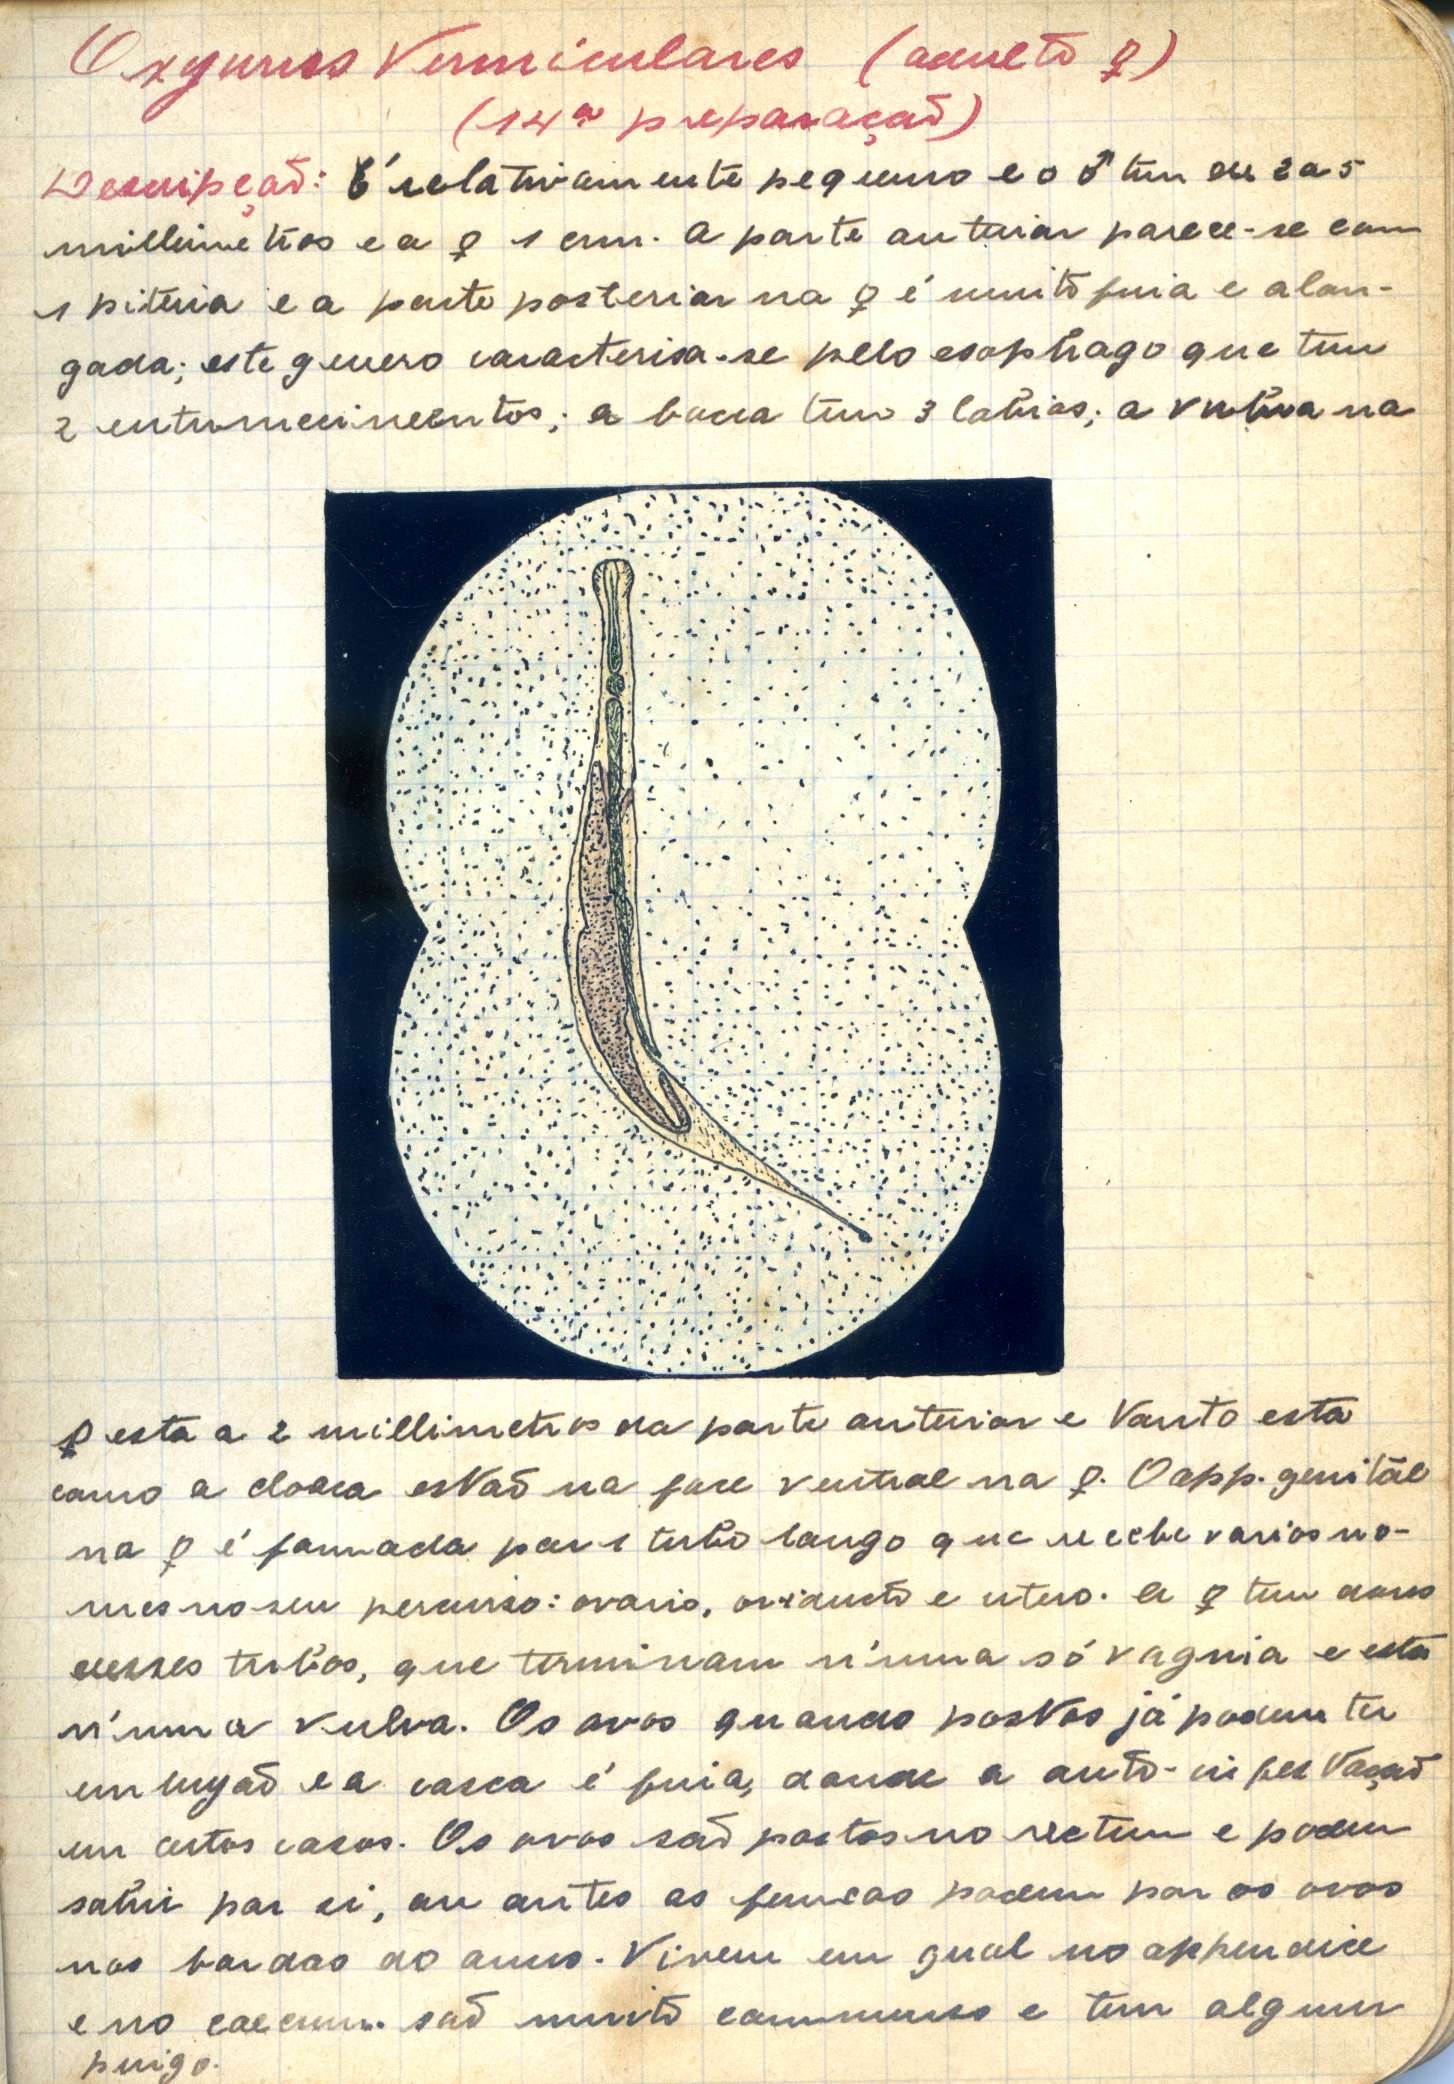 Oxyurus Vermiculares (adulto ♀)
(14ª preparação)
Descripção: É relativamente pequeno e o ♂ tem de 2 a 5
millimetros e a ♀ 1 cm. A parte anterior parece-se com
1 e a parte posterior na ♀ é muito fina e alon-
gada; este genero caracterisa-se pelo esophago que tem
2 entumecimentos; a bocca tem 3 labios; a vulva na
♀ esta a 2 millimetros da parte anterior e tanto esta
como a cloaca estão na face ventral na ♀. O app. genital
na ♀ é formada por 1 tubo longo que recebe varios no-
mes no seu percurso: ovario, oviducto e utero. A ♀ tem dous
desses tubos, que terminam n'uma só vagina e esta
n'uma vulva. Os ovos quando postos já podem ter
embryão e a casca é fina, donde a auto-infestação
em certos casos. Os ovos são postos no rectum e podem
sahir por si, ou antes as femeas podem por os ovos
nos bordos do anus. Vivem em geral no appendice
e no caecum. são muito communs e tem algum
perigo.